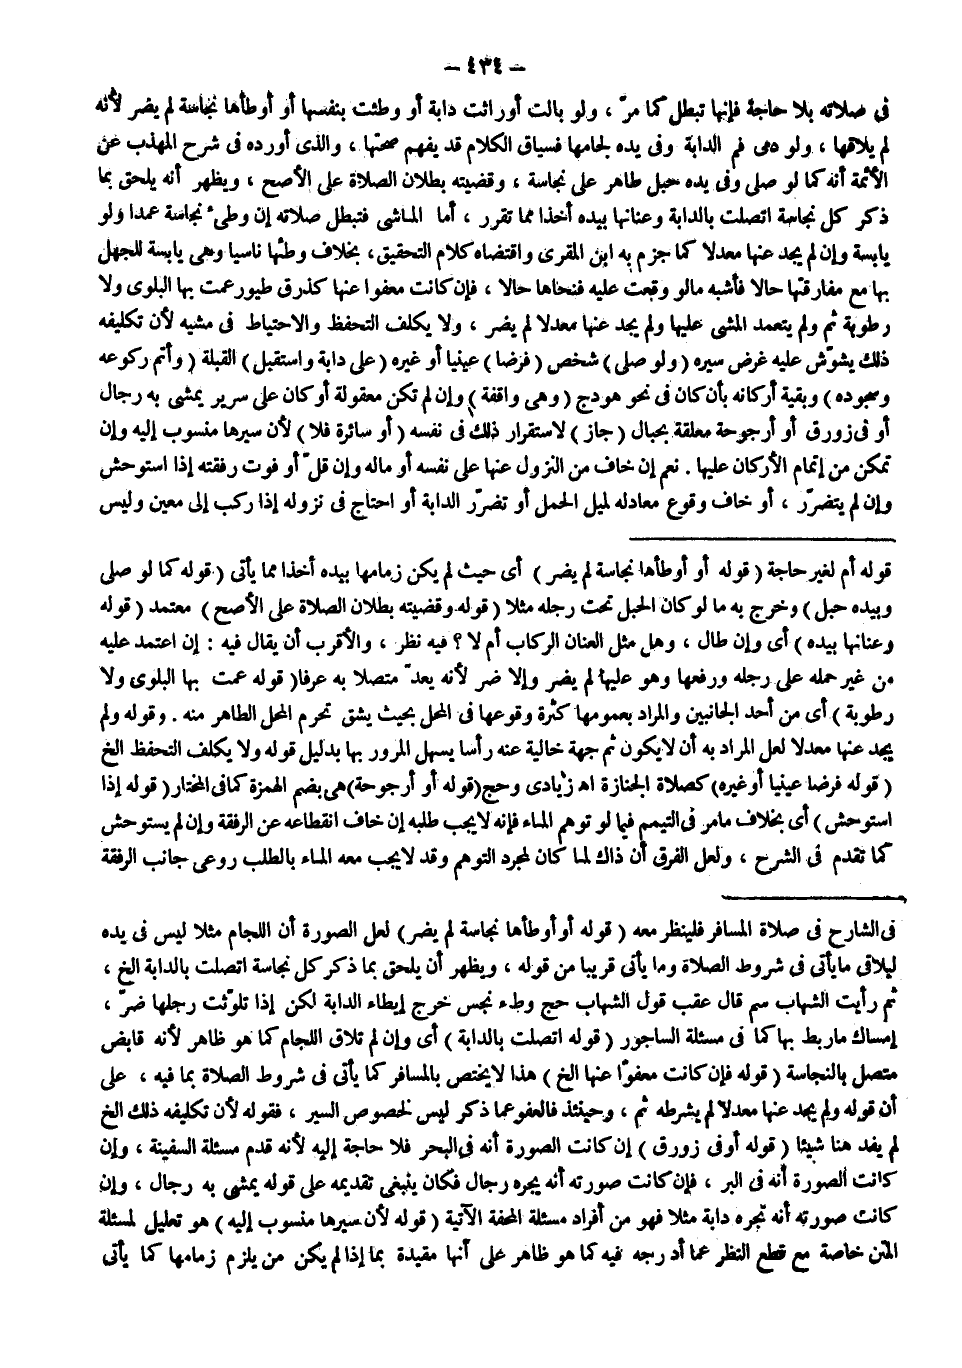 - ٤٣٤ -
فى صلاته بلا حاجة فإنها تبطل كما مرّ ، ولو بالت أوراثت دابة أو وطئت بنفسها أو أوطأها نجاسة لم يضر لأنه
لم يلاقها ، ولو دمى فم الدابة وفى يده لجامها فسياق الكلام قد يفهم صحتها ، والذى أورده فى شرح المهذب عن
الأئمة أنه كما لو صلى وفى يده حبل طاهر على نجاسة ، وقضيته بطلان الصلاة على الأصح ، ويظهر أنه يلحق بما
ذكر كل نجاسة اتصلت بالدابة وعنانها بيده أخذا مما تقرر ، أما الماشى فتبطل صلاته إن وطىء نجاسة عمدا ولو
يابسة وإن لم يجد عنها معدلا كما جزم به ابن المقرى واقتضاه كلام التحقيق، بخلاف وطئها ناسيا وهى يابسة للجهل
بها مع مفارقتها حالا فأشبه مالو وقعت عليه فنحاها حالا ، فإن كانت معفوا عنها كذرق طيور عمت بها البلوى ولا
رطوبة ثم ولم يتعمد المشى عليها ولم يجد عنها معدلا لم يضر ، ولا يكلف التحفظ والاحتياط فى مشيه لأن تكليفه
ذلك يشوّش عليه غرض سيره ( ولو صلى ) شخص ( فرضا ) عينيا أو غيره ( على دابة واستقبل ) القبلة ( وأتم ركوعه
وسجوده ) وبقية أركانه بأن كان فى نحو هودج ( وهى واقفة ) وإن لم تكن معقولة أو كان على سرير يمشى به رجال
أو فى زورق أو أرجوحة معلقة بحبال ( جاز ) لاستقرار ذلك فى نفسه ( أو سائرة فلا ) لأن سيرها منسوب إليه وإن
تمكن من إتمام الأركان عليها . نعم إن خاف من النزول عنها على نفسه أو ماله وإن قلّ أو فوت رفقته إذا استوحش
وإن لم يتضرّر ، أو خاف وقوع معادله لميل الحمل أو تضرّر الدابة أو احتاج فى نزوله إذا ركب إلى معين وليس
قوله أم لغير حاجة ( قوله أو أوطأها نجاسة لم يضر ) أى حيث لم يكن زمامها بيده أخذا مما يأتى ( قوله كما لو صلى
وبيده حبل ) وخرج به ما لو كان الحبل تحت رجله مثلا ( قوله وقضيته بطلان الصلاة على الأصح ) معتمد ( قوله
وعنانها بيده ) أى وإن طال ، وهل مثل العنان الركاب أم لا ؟ فيه نظر ، والأقرب أن يقال فيه : إن اعتمد عليه
من غير حمله على رجله ورفعها وهو عليها لم يضر وإلا ضر لأنه يعدّ متصلا به عرفا ( قوله عمت بها البلوى ولا
رطوبة ) أى من أحد الجانبين والمراد بعمومها كثرة وقوعها فى المحل بحيث يشق تحرم المحل الطاهر منه . وقوله ولم
يجد عنها معدلا لعل المراد به أن لايكون ثم جهة خالية عنه رأسا يسهل المرور بها بدليل قوله ولا يكلف التحفظ الخ
( قوله فرضا عينيا أو غيره) كصلاة الجنازة اه زيادى وحج (قوله أو أرجوحة) هى بضم الهمزة كما فى المختار ( قوله إذا
استوحش ) أى بخلاف مامر فى التيمم فيما لو توهم الماء فإنه لايجب طلبه إن خاف انقطاعه عن الرفقة وإن لم يستوحش
كما تقدم فى الشرح ، ولعل الفرق أن ذاك لما كان لمجرد التوهم وقد لايجب معه الماء بالطلب روعى جانب الرفقة
فى الشارح فى صلاة المسافر فلينظر معه ( قوله أو أوطأها نجاسة لم يضر) لعل الصورة أن اللجام مثلا ليس فى يده
ليلاقى مايأتى فى شروط الصلاة وما يأتى قريبا من قوله ، ويظهر أن يلحق بما ذكر كل نجاسة اتصلت بالدابة الخ ،
ثم رأيت الشهاب سم قال عقب قول الشهاب حج وطء نجس خرج إيطاء الدابة لكن إذا تلوّثت رجلها ضرّ ،
إمساك ماربط بها كما فى مسئلة الساجور ( قوله اتصلت بالدابة ) أى وإن لم تلاق اللجام كما هو ظاهر لأنه قابض
متصل بالنجاسة ( قوله فإن كانت معفوّا عنها الخ ) هذا لايختص بالمسافر كما يأتى فى شروط الصلاة بما فيه ، على
أن قوله ولم يجد عنها معدلا لم يشرطه ثم ، وحينئذ فالعفو عما ذكر ليس لخصوص السير ، فقوله لأن تكليفه ذلك الخ
لم يفد هنا شيئا ( قوله أو فى زورق ) إن كانت الصورة أنه فى البحر فلا حاجة إليه لأنه قدم مسئلة السفينة ، وإن
كانت الصورة أنه فى البر ، فإن كانت صورته أنه يجره رجال فكان ينبغى تقديمه على قوله يمشى به رجال ، وإن
كانت صورته أنه تجره دابة مثلا فهو من أفراد مسئلة المحفة الآتية ( قوله لأن سيرها منسوب إليه ) هو تعليل لمسئلة
المتن خاصة مع قطع النظر عما أدرجه فيه كما هو ظاهر على أنها مقيدة بما إذا لم يكن من يلزم زمامها كما يأتى